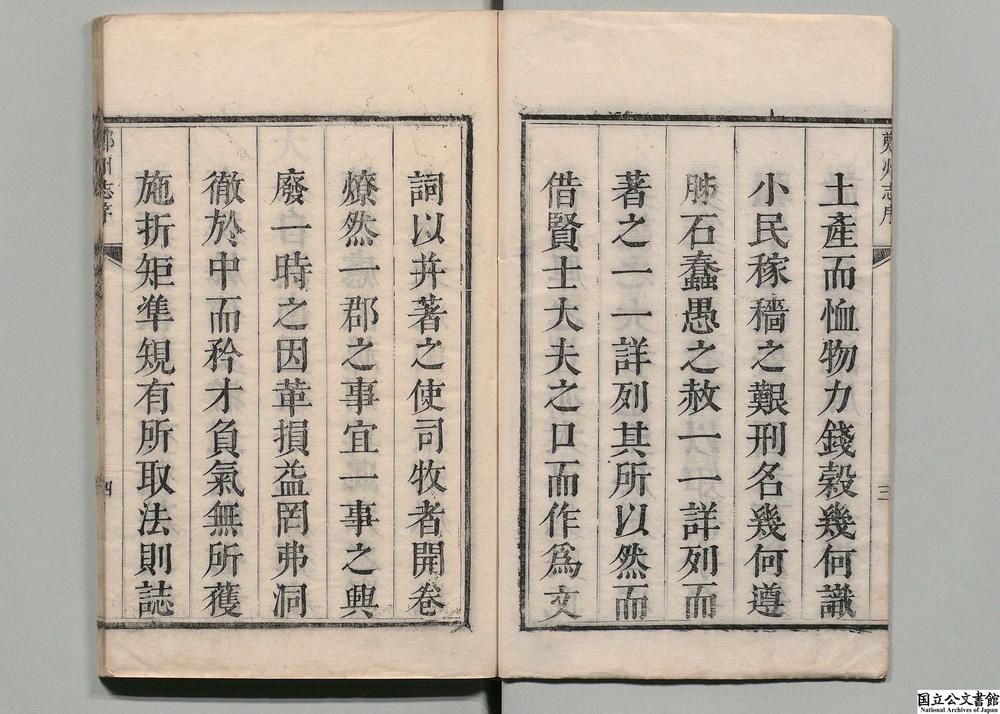 鄭州志序
三
土產而恤物力錢穀幾何識
小民稼穡之艱刑名幾何遵
肺石蠢愚之赦一一詳列而
著之一一詳列其所以然而
借賢士大夫之口而作爲文
詞以幷著之使司牧者開卷
燎然一郡之事宜一事之興
廢一時之因革損益罔弗洞
徹於中而矜才負氣無所獲
施折矩準䂓有所取法則誌
鄭州志序
四
国立公文書館
National Archives of Japan